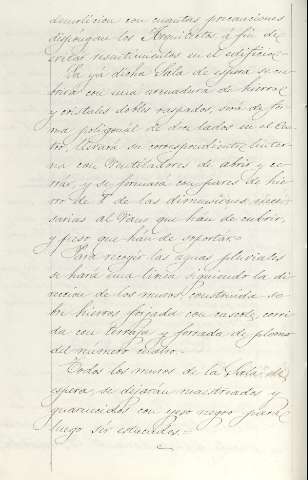 demolicion con cuantas precauciones
dispongan los Arquitectos á fin de
evitar resentimientos en el edificio.
La yá dicha Sala de espera se cu-
brirá con una armadura de hierro
y cristales dobles raspados, será de for-
ma poligonál de doce lados en el cen-
tro, llevará su correspondiente linter-
na con ventiladores de abrir y ce-
rrar, y se formará con pares de hie-
rro de T de las dimensiones nece-
sarias al vano que han de cubrir,
y peso que hán de soportár.
Para recoger las aguas pluviales
se hará una lima siguiendo la di-
rección de los muros, construida so-
bre hierros forjada con cascote, corri-
da con terraja y forrada de plomo
del número cuatro.
Todos los muros de la Sala de
espera, se dejarán maestreados y
guarnecidos con yeso negro para
luego ser estucados.=